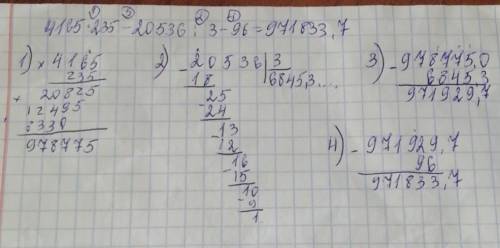 ① ③ ② ④
4165·235-20536:3-96=971833,7
1) × 4165
235
+ 20825
12495
8330
978775
2) - 20536 | 3
18 6845,3....
- 25
24
- 13
12
- 16
15
- 10
9
1
3) - 978775,0
6845 3
971929,7
4) - 971929,7
96
971833,7